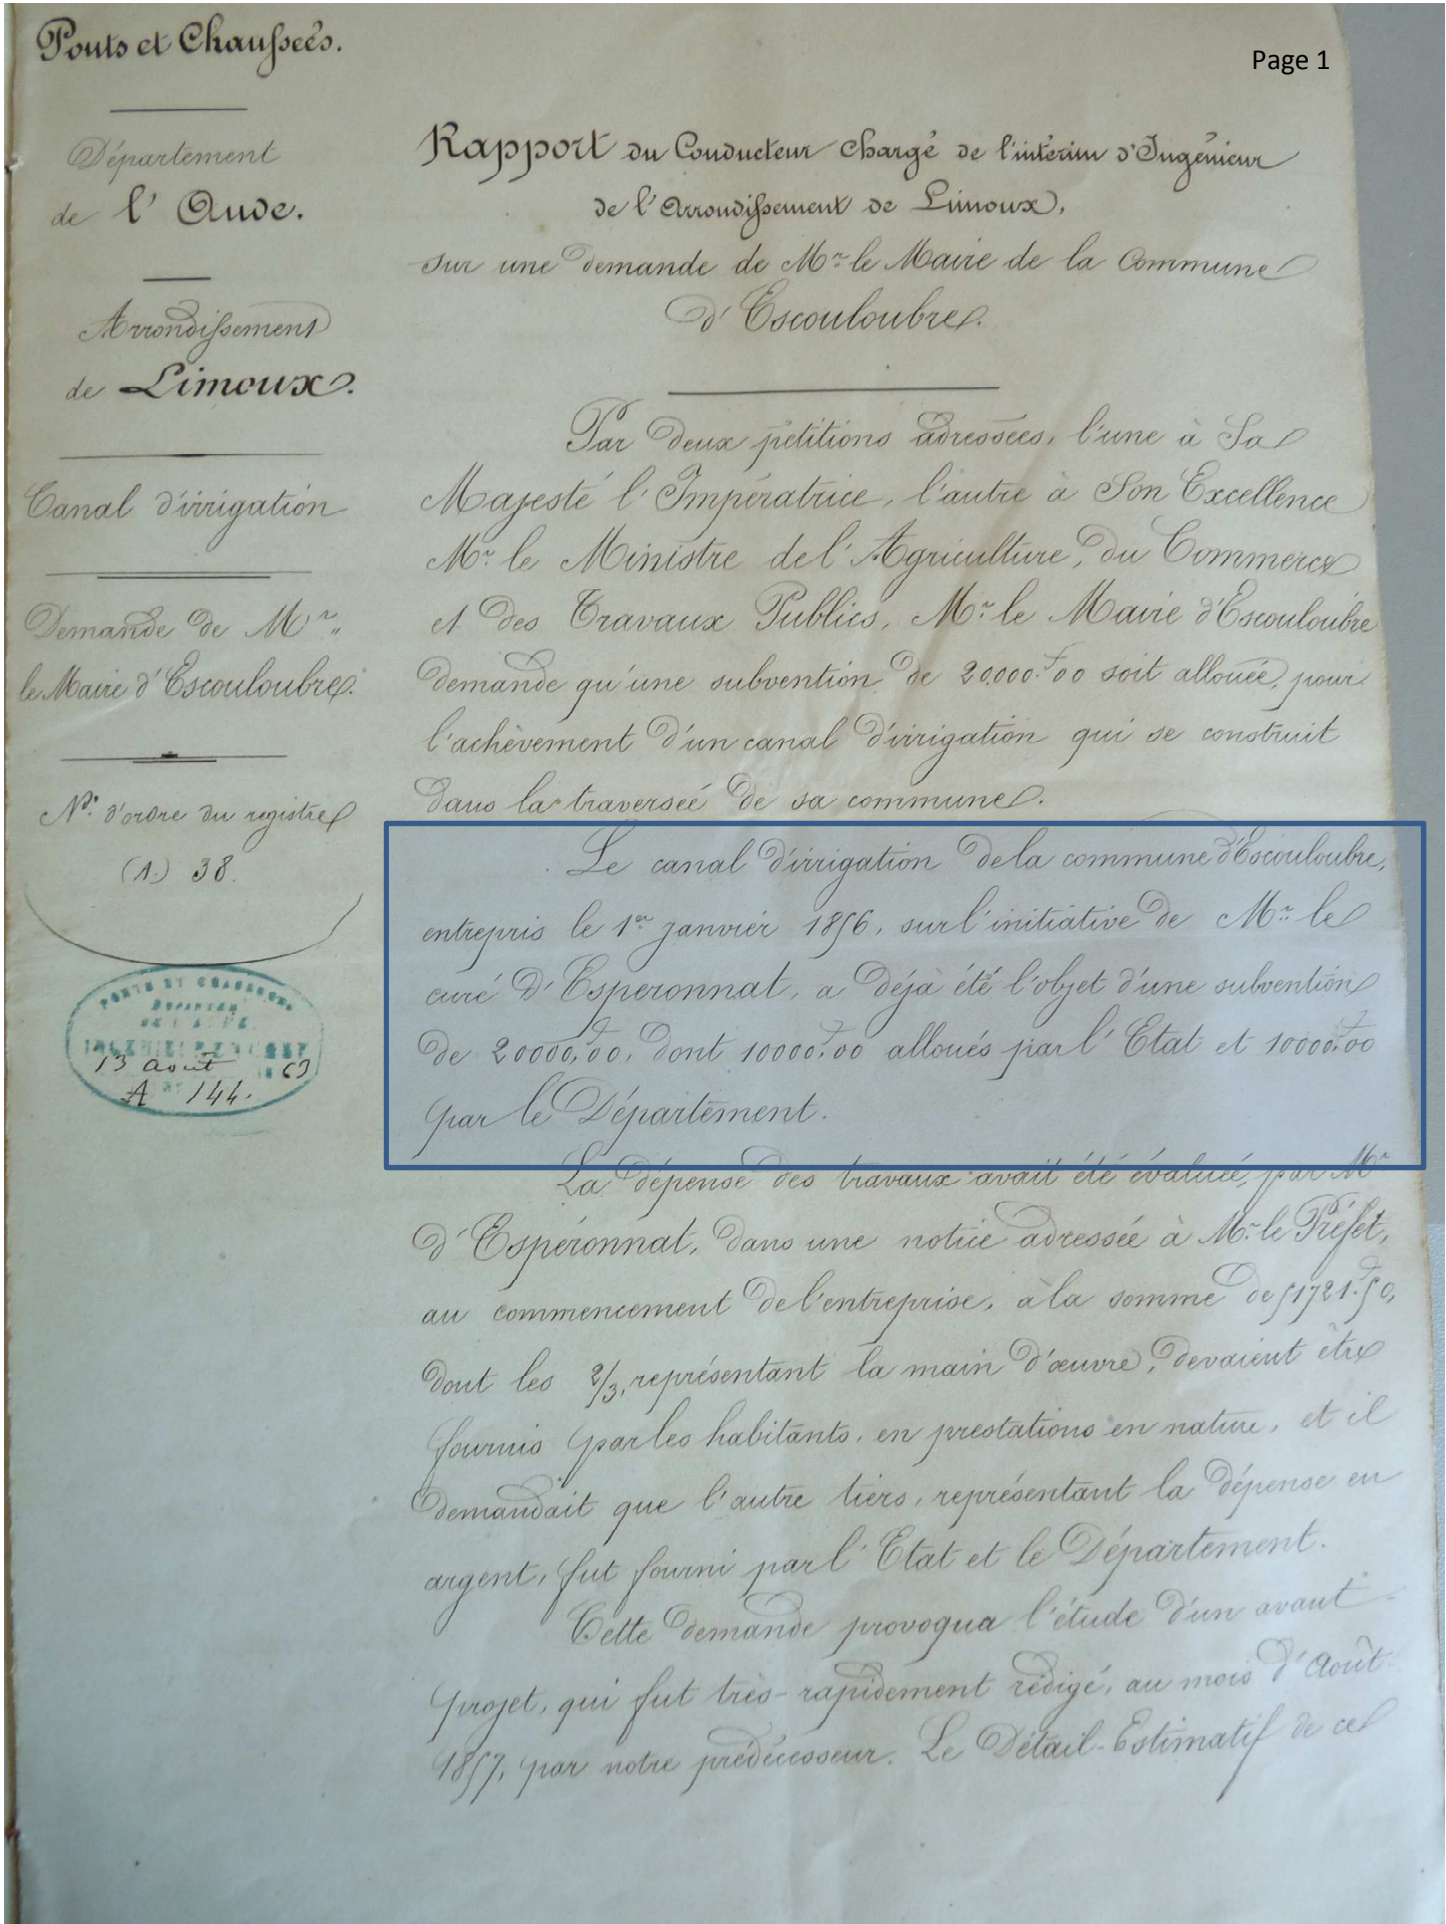 Ponts et Chaussées.
Département
de l'Aude.
Arrondissement
de Limoux.
Canal d'irrigation
Demande de Mr.
le Maire d'Escouloubre.
No. d'ordre du registre
(1.) 38.
PONTS ET CHAUSSÉES
13 août 63
A 144.
Page 1
Rapport du Conducteur chargé de l'intérim d'Ingénieur
de l'Arrondissement de Limoux,
sur une demande de Mr. le Maire de la Commune
d'Escouloubre.
Par deux pétitions adressées, l'une à Sa
Majesté l'Impératrice, l'autre à Son Excellence
Mr. le Ministre de l'Agriculture, du Commerce
et des Travaux Publics, Mr. le Maire d'Escouloubre
demande qu'une subvention de 20.000.f00 soit allouée, pour
l'achèvement d'un canal d'irrigation qui se construit
dans la traversée de sa commune.
Le canal d'irrigation de la commune d'Escouloubre,
entrepris le 1er janvier 1856, sur l'initiative de Mr. le
curé d'Esperonnat, a déjà été l'objet d'une subvention
de 20000,f00, dont 10000,f00 alloués par l'Etat et 10000,f00
par le Département.
La dépense des travaux avait été évaluée, par Mr
d'Espéronnat, dans une notice adressée à Mr. le Préfet,
au commencement de l'entreprise, à la somme de 51721.f50,
dont les 2/3, représentant la main d'œuvre, devaient être
fournis par les habitants, en prestations en nature, et il
demandait que l'autre tiers, représentant la dépense en
argent, fut fourni par l'Etat et le Département.
Cette demande provoqua l'étude d'un avant-
projet, qui fut très-rapidement rédigé, au mois d'Août
1857, par notre prédécesseur. Le Détail-Estimatif de ce